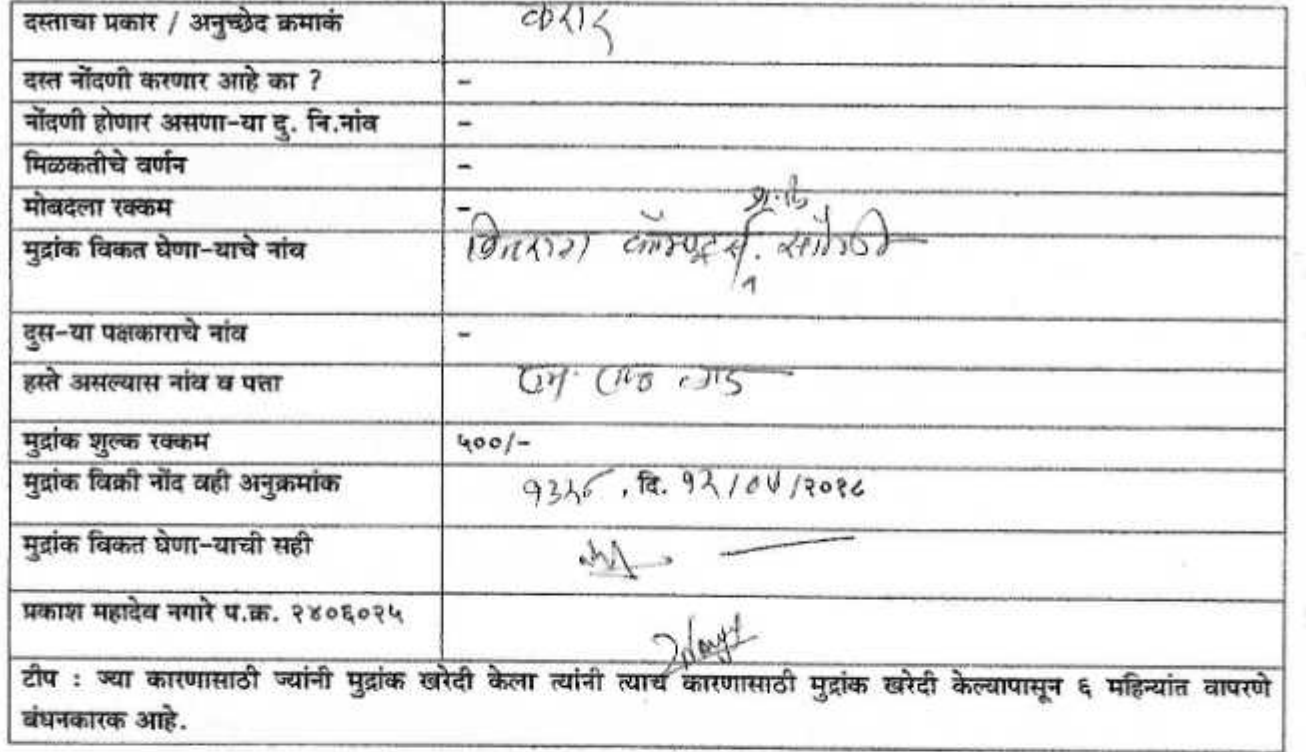 दस्ताचा प्रकार / अनुच्छेद क्रमाकं करार
दस्त नोंदणी करणार आहे का ? -
नोंदणी होणार असणा-या दु. नि.नांव -
मिळकतीचे वर्णन -
मोबदला रक्कम -
मुद्रांक विकत घेणा-याचे नांव कॉम्प्युटर्स. सांगली
दुस-या पक्षकाराचे नांव -
हस्ते असल्यास नांव व पत्ता
मुद्रांक शुल्क रक्कम ५००/-
मुद्रांक विक्री नोंद वही अनुक्रमांक , दि. /२०१८
मुद्रांक विकत घेणा-याची सही
प्रकाश महादेव नगारे प.क्र. २४०६०२५
टीप : ज्या कारणासाठी ज्यांनी मुद्रांक खरेदी केला त्यांनी त्याच कारणासाठी मुद्रांक खरेदी केल्यापासून ६ महिन्यांत वापरणे
बंधनकारक आहे.